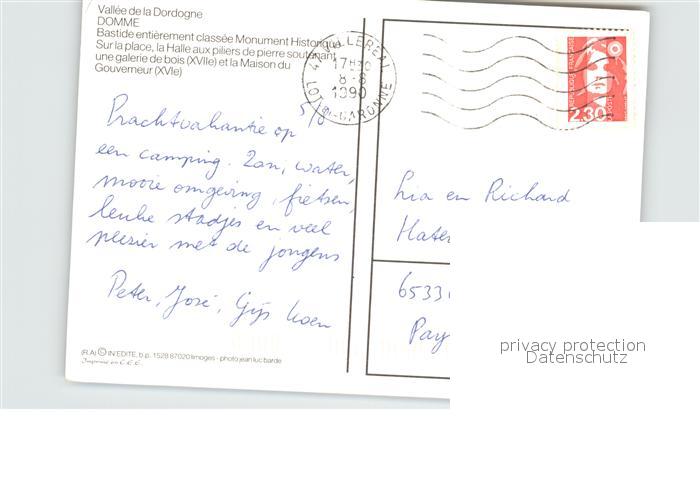 Vallée de la Dordogne
DOMME
Bastide entièrement classée Monument Historique
Sur la place, la Halle aux piliers de pierre soutenant
une galerie de bois (XVIIe) et la Maison du
Gouverneur (XVIe)
47 VILLEREAL
17H
8-8
1990
LOT-ET-GARONNE
2,30
5/8
Prachtvakantie op
een camping. Zon, water,
mooie omgeving, fietsen,
leuke stadjes en veel
plezier met de jongens
Peter, José, Gijs Koen
Lia en Richard
6533
Pay
(R.A) © IN'EDITE, b.p. 1528 87020 limoges - photo jean luc barde
Imprimé en C.E.E.
privacy protection
Datenschutz